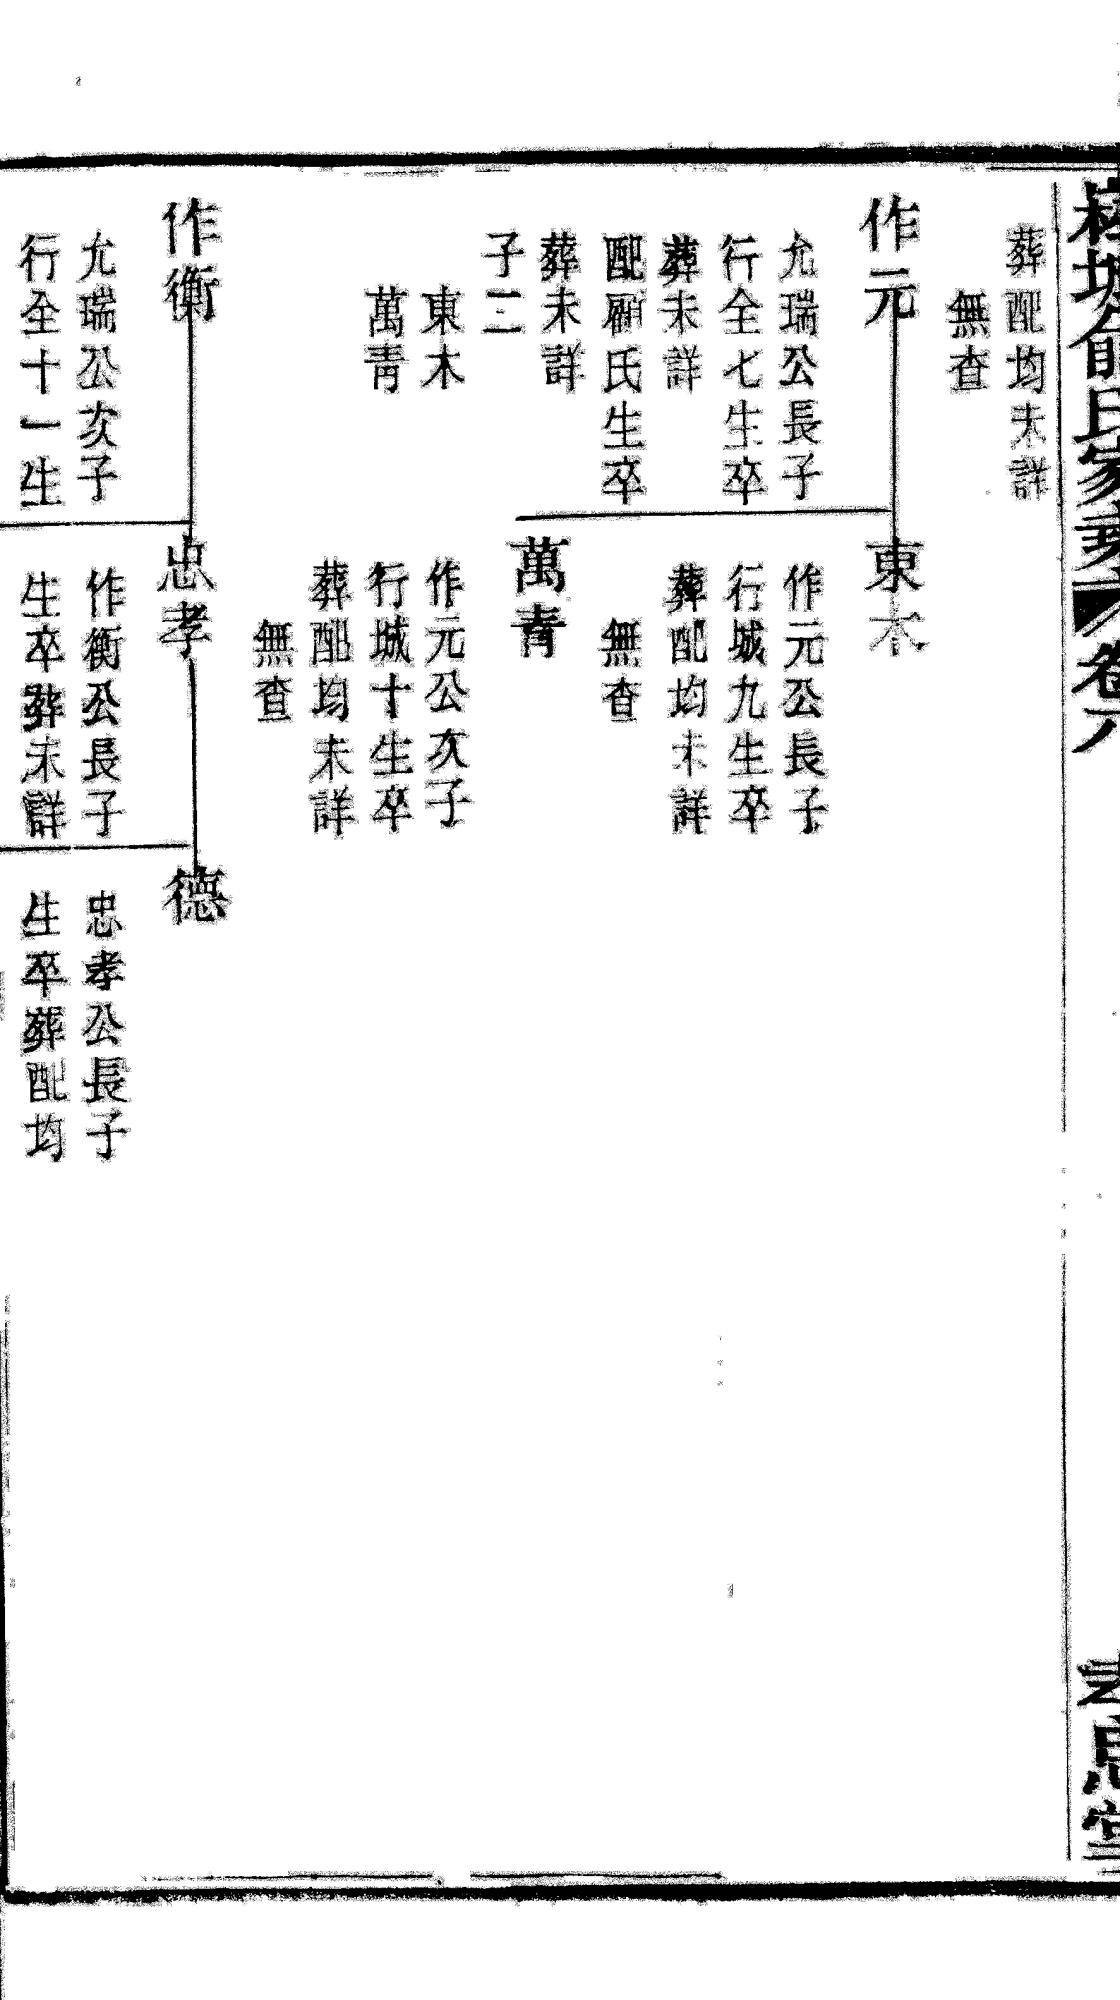 俞氏家乘 卷
思堂
葬配均未詳
無查
作元
允瑞公長子
行全七生卒
葬未詳
配顧氏生卒
葬未詳
子二
東木
萬青
東木
作元公長子
行城九生卒
葬配均未詳
無查
萬青
作元公次子
行城十生卒
葬配均未詳
無查
作衡
允瑞公次子
行全十一生
忠孝
作衡公長子
生卒葬未詳
德
忠孝公長子
生卒葬配均